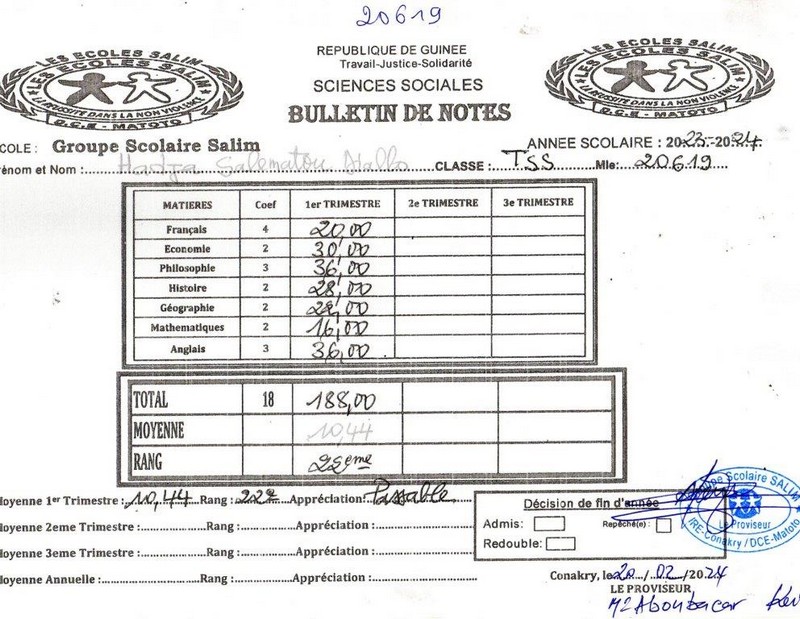 20619
LES ECOLES SALIM
LES ECOLES SALIM
LA REUSSITE DANS LA NON VIOLENCE
D.C.E - MATOTO
REPUBLIQUE DE GUINEE
Travail-Justice-Solidarité
SCIENCES SOCIALES
BULLETIN DE NOTES
LES ECOLES SALIM
LES ECOLES SALIM
LA REUSSITE DANS LA NON VIOLENCE
D.C.E - MATOTO
COLE : Groupe Scolaire Salim ANNEE SCOLAIRE : 2023-2024
rénom et Nom : Hadja Salematou Diallo CLASSE : TSS Mle: 20619
MATIERES Coef 1er TRIMESTRE 2e TRIMESTRE 3e TRIMESTRE
Français 4 20,00
Economie 2 30,00
Philosophie 3 36,00
Histoire 2 28,00
Géographie 2 22,00
Mathematiques 2 16,00
Anglais 3 36,00
TOTAL 18 188,00
MOYENNE 10,44
RANG 22eme
Moyenne 1er Trimestre : 10,44 Rang : 22e Appréciation: Passable
Moyenne 2eme Trimestre : Rang : Appréciation :
Moyenne 3eme Trimestre : Rang : Appréciation :
Moyenne Annuelle : Rang : Appréciation :
Décision de fin d'année
Admis: Repêché(e) :
Redouble:
Groupe Scolaire SALIM
Le Proviseur
IRE-Conakry / DCE-Matoto
Conakry, le 20/02/2024
LE PROVISEUR
Mr Aboubacar